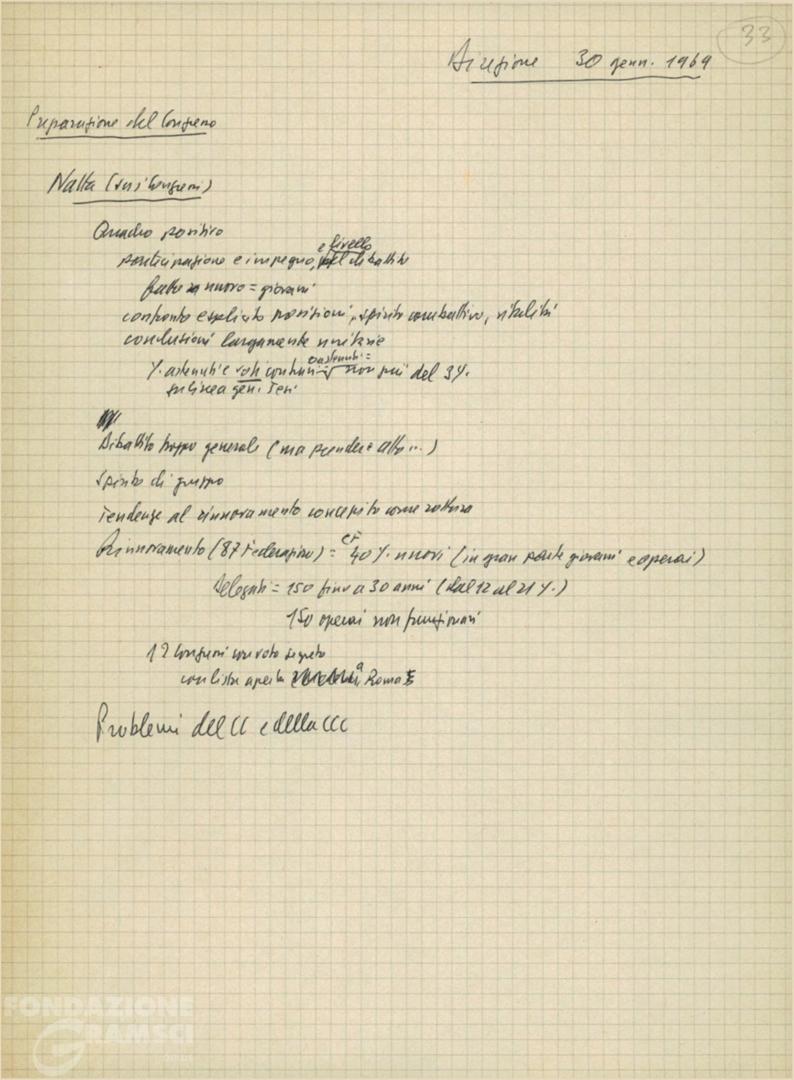 33
Direzione 30 genn. 1969
Preparazione del Congresso
Natta (sui Congressi)
Quadro positivo
e livello
partecipazione e impegno, del dibattito
fatto nuovo = giovani
confronto esplicito posizioni, spirito combattivo, vitalità
conclusioni largamente unitarie
o astenuti =
% astenuti e voti contrari non più del 3%
su linea gen. Tesi
Dibattito troppo generale (ma prendere atto ...)
Spirito di gruppo
Tendenze al rinnovamento concepito come rottura
CF
Rinnovamento (87 Federazioni) = 40% nuovi (in gran parte giovani e operai)
Delegati = 150 fino a 30 anni (dal 12 al 21%)
150 operai non funzionari
12 Congressi con voto segreto
con lista aperta a Roma
Problemi del CC e della CCC
FONDAZIONE
GRAMSCI